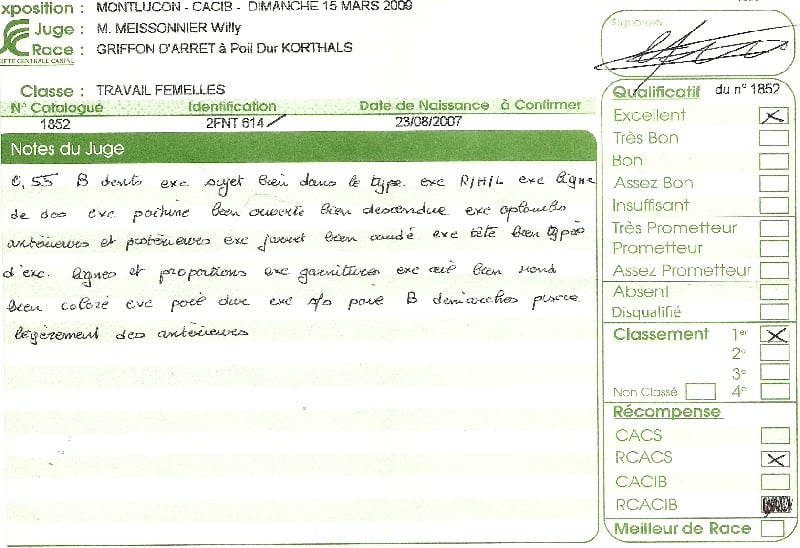 xposition : MONTLUCON - CACIB - DIMANCHE 15 MARS 2009
Juge : M. MEISSONNIER Willy
Race : GRIFFON D'ARRET à Poil Dur KORTHALS
Classe : TRAVAIL FEMELLES
N° Catalogue Identification Date de Naissance à Confirmer
1852 2FNT 614 23/08/2007
Notes du Juge
0,55 B dents exc sujet bien dans le type exc R/H/L exc ligne
de dos exc poitrine bien ouverte bien descendue exc aplombs
antérieures et postérieures exc jarret bien coudé exc tête bien typée
d'exc. lignes et proportions exc garnitures exc œil bien rond
bien coloré exc poil dur exc s/s poil B démarches pince
légèrement des antérieures
Signature :
Qualificatif du n° 1852
Excellent
Très Bon
Bon
Assez Bon
Insuffisant
Très Prometteur
Prometteur
Assez Prometteur
Absent
Disqualifié
Classement 1er
2e
3e
Non Classé 4e
Récompense
CACS
RCACS
CACIB
RCACIB
Meilleur de Race